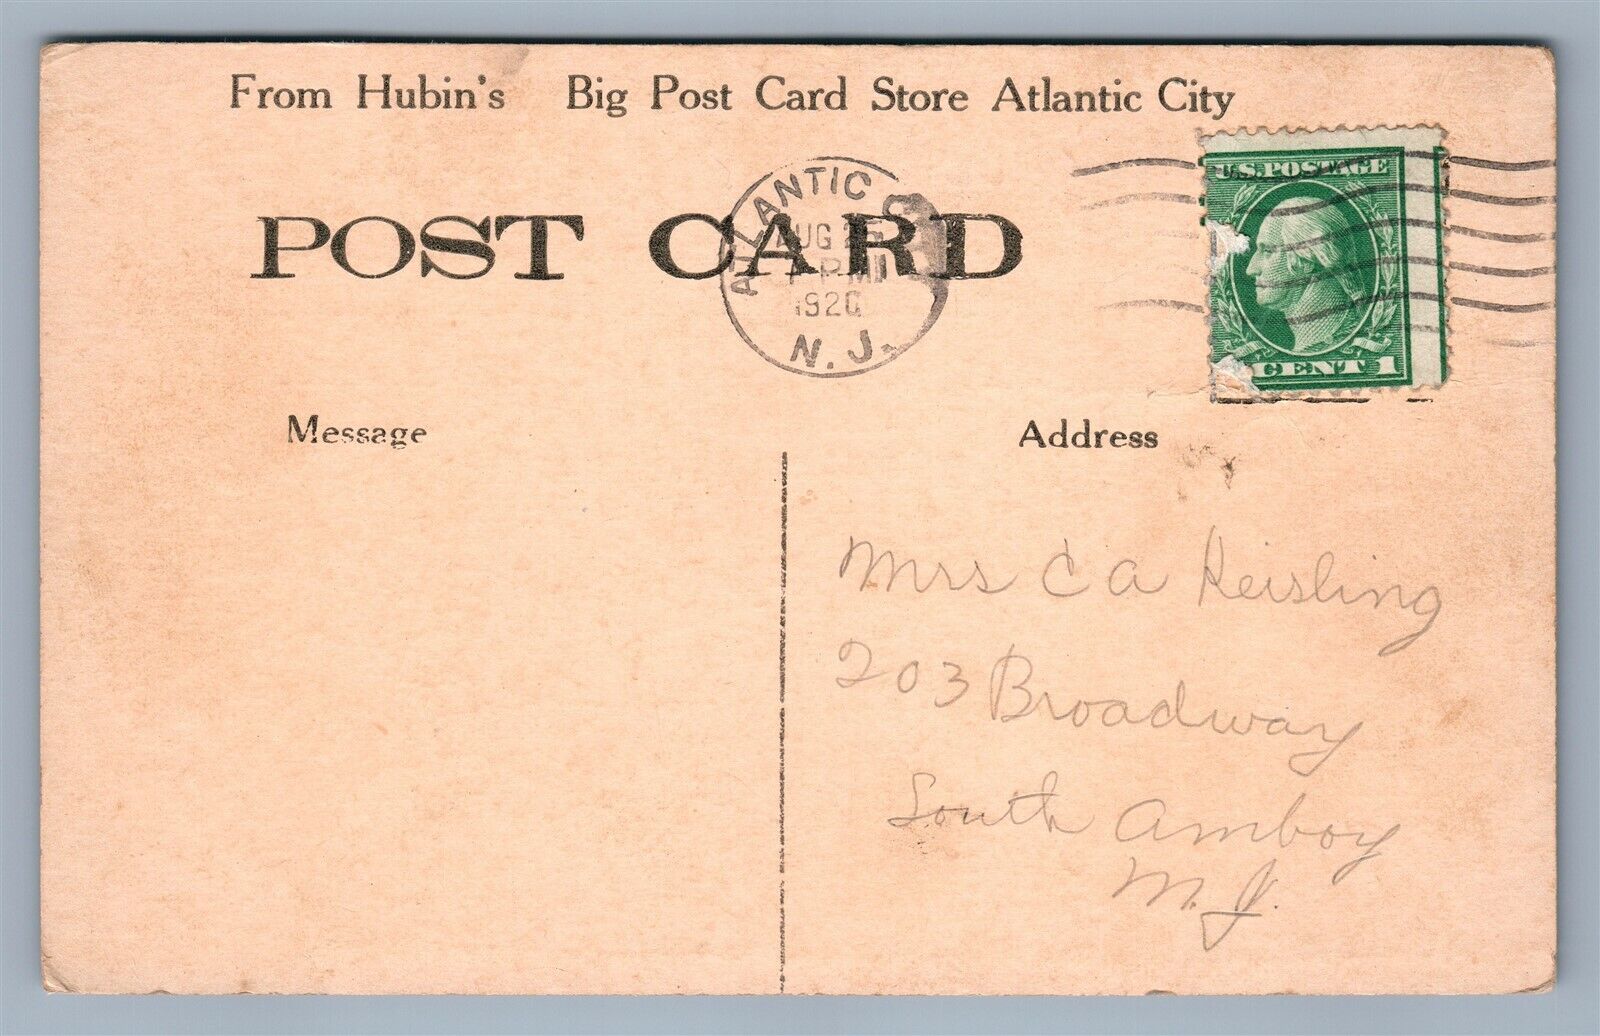 From Hubin's Big Post Card Store Atlantic City
U.S. POSTAGE
ATLANTIC
AUG 25
PM
1920
N.J.
POST CARD
CENT 1
Message
Address
Mrs C A Keisling
203 Broadway
South Amboy
N. J.